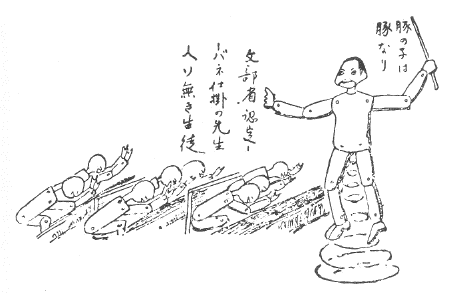 豚の子は
豚なり
文部省認定ー
ーバネ仕掛の先生
人ソ無き生徒